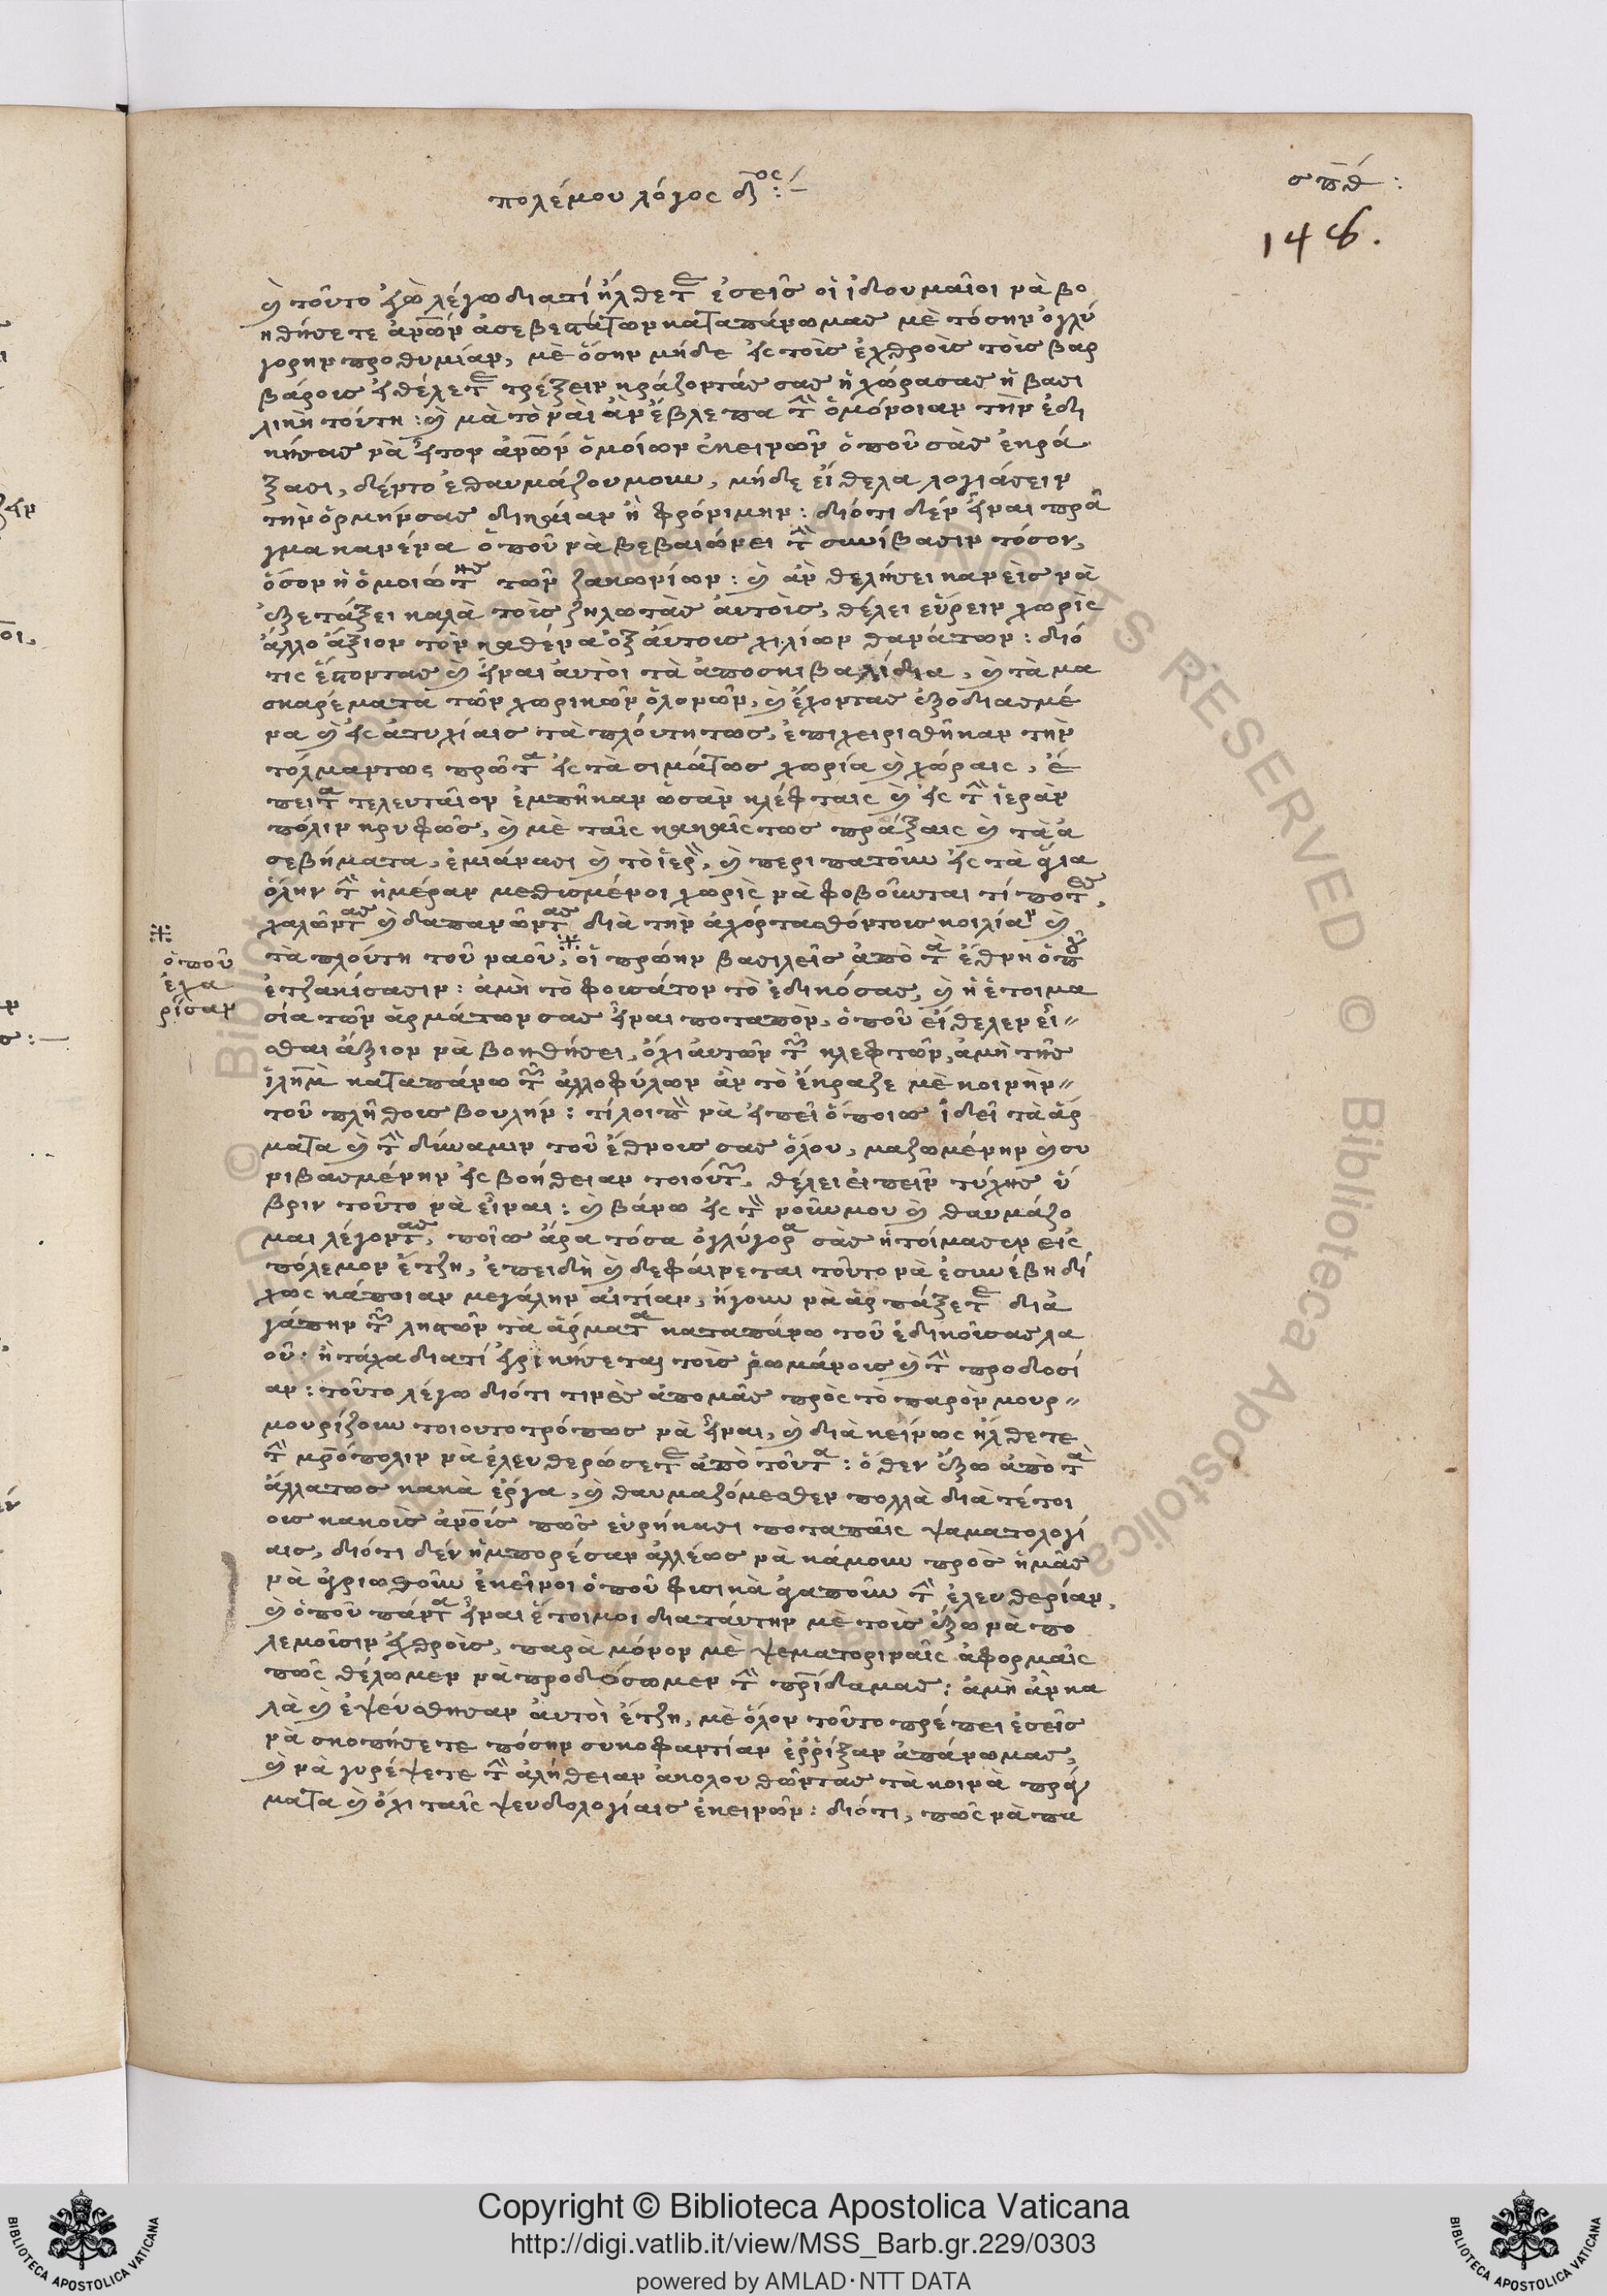 πολέμου λόγος δ^ος :–
σπθ :
148.
καὶ τοῦτο ἐγὼ λέγω διατί ἤλθετε ἐσεῖς οἱ ἰδουμαῖοι νὰ βο
ηθήσετε ἀνων ἀσεβεστάτων καταπάνωμας μὲ τόσην ὀγλύ
γορην προθυμίαν, μὲ ὅσην μήδε εἰς τοὶς ἐχθροὶς τοὶς βαρ
βάροις ἐθέλετε τρέξειν κράζοντάς σας ἡ χώρασας ἡ βασι
λικὴ τούτη : καὶ μὰ τὸ ναὶ ἂν ἔβλεπα τὴν ὁμόνοιαν τὴν ἐδι
κήσας νὰ ἦτον ἀνων ὁμοίων ἐκεινῶν ὁποῦ σὰς ἐκρά
ξασι, δέντο ἐθαυμάζουμουν, μήδε εἴθελα λογιάσειν
τὴν ὁρμήνσας δικαίαν ἢ φρόνιμην : διότι δέν εἶναι πρᾶ
γμα κανένα ὁποῦ νὰ βεβαιώνει τὴν συνίβασιν τόσον,
ὅσον ἡ ὁμοιώτης τῶν ζακωνίων : καὶ ἂν θελήσει κανεὶς νὰ
ἐξετάξει καλὰ τοὶς ζηλωτὰς αὐτοὶς, θέλει εὕρειν χωρὶς
ἄλλο ἄξιον τὸν καθένα ὀξ αὐτοις χιλίων θανάτων : διό
τις ἔστοντας καὶ εἶναι αὐτοὶ τὰ ἀποσκιβαλίδια, καὶ τὰ μα
σκαρέματα τῶν χωρικῶν ὁλονῶν, καὶ ἔχοντας ἐξοδιασμέ
να καὶ εἰς ἀτυχίαις τὰ πλούτητως, ἐπιχειρισθῆκαν τὴν
τόλμαντως πρῶτα εἰς τὰ σιμάτως χωρία καὶ χώραις, ἔ
πειτα τελευταῖον ἐμπῆκαν ὡσὰν κλέφταις καὶ εἰς τὴν ἱερὰν
πόλιν κρυφῶς, καὶ μὲ ταῖς κακαῖςτως πράξαις καὶ τὰ ἀ
σεβήματα, ἐμιάνασι καὶ τὸ ἱερὸν, καὶ περιπατοῦν εἰς τὰ ἅγια
ὅλην τὴν ἡμέραν μεθισμένοι χωρὶς νὰ φοβοῦνται τίποτες,
χαλῶντας καὶ δαπανῶντας διὰ τὴν ἀχόρταστόντοις κοιλίαν καὶ
τὰ πλούτη τοῦ ναοῦ, ※ οἱ πρώην βασιλεῖς ἀπὸ τὰ ἔθνη ὁποῦ
※ ὁποῦ
ἐχα
ρίσαν
ἐτζακίσασιν : ἀμὴ τὸ φουσάτον τὸ ἐδικόσας, καὶ ἡ ἑτοιμα
σία τῶν ἁρμάτων σας εἶναι ποταπὸν, ὁποῦ εἴθελεν εἶ〃
σθαι ἄξιον νὰ βοηθήσει, ὄχι αὐτῶν τῶν κλεφτῶν, ἀμὴ τῆς
ἱλημ καταπάνω τῶν ἀλλοφύλων ἂν τὸ ἔκραξε μὲ κοινὴν〃
τοῦ πλῆθους βουλήν : τίλοιπὸν νὰ εἰπεῖ ὅποιος ἰδεῖ τὰ ἅρ
ματα καὶ τὴν δύναμιν τοῦ ἔθνους σας ὅλου, μαζωμένην καὶ συ
νιβασμένην εἰς βοήθειαν τοιούτων, θέλει εἰπεῖν τύχης ὕ
βριν τοῦτο νὰ εἶναι : καὶ βάνω εἰς τὸν νοῦνμου καὶ θαυμάζο
μαι λέγοντας, ποῖος ἄρα τόσα ὀγλύγορα σὰς ἡτοίμασεν εἰς
πόλεμον ἔτζη, ἐπειδὴ καὶ δεφαίνεται τοῦτο νὰ ἐσυνέβη δί
χως κάποιαν μεγάλην αἰτίαν, ἤγουν νὰ ἁρπάξετε διὰ
γάπην τῶν ληστῶν τὰ ἅρματα καταπάνω τοῦ ἐδικοῦσας λα
οῦ : ἢ τάχα διατί ἐγρικήσεται τοὶς ῥωμάνοις καὶ τὴν προδοσί
αν : τοῦτο λέγω διότι τινὲς ἀπομᾶς πρὸς τὸ παρὸν μουρ〃
μουρίζουν τοιουτοτρόπως νὰ εἶναι, καὶ διὰ κείνως ἤλθετε
τὴν μρόπολιν νὰ ἐλευθερώσετε ἀπὸ τοῦτα : ὅθεν ἔξω ἀπὸ τὰ
ἄλλατως κακὰ ἔργα, καὶ θαυμαζόμεσθεν πολλὰ διὰ τέτοι
οις κακοὶς ἀνοὶς πῶς εὑρήκασι ποταπαῖς ψαματολογί
αις, διότι δέν ἡμπορέσαν ἀλλέως νὰ κάμουν πρὸς ἡμᾶς
νὰ ἀγριωθοῦν ἐκεῖνοι ὁποῦ φισικὰ ἀγαποῦν τὴν ἐλευθερίαν,
καὶ ὁποῦ πάντα εἶναι ἕτοιμοι διατάυτην μὲ τοὶς ἔξω νὰ πο
λεμοῦσιν ἐχθροὶς, παρὰ μόνον μὲ ψεματοριναῖς ἀφορμαῖς
πῶς θέλωμεν νὰ προδώσωμεν τὴν πρίδαμας : ἀμὴ ἂν κα
λὰ καὶ ἐψεύσθησαν αὐτοὶ ἔτζη, μὲ ὅλον τοῦτο πρέπει ἐσεῖς
νὰ σκοπήσετε πόσην συκοφαντίαν ἐῤῥίξαν ἀπάνωμας,
καὶ νὰ γυρέψετε τὴν ἀλήθειαν ἀκολουθῶντας τὰ κοινὰ πράγ
ματα καὶ ὄχι ταῖς ψευδολογίαις ἐκεινῶν : διότι, πῶς νὰ πα
Copyright © Biblioteca Apostolica Vaticana
http://digi.vatlib.it/view/MSS_Barb.gr.229/0303
powered by AMLAD·NTT DATA
BIBLIOTECA APOSTOLICA VATICANA
BIBLIOTECA APOSTOLICA VATICANA